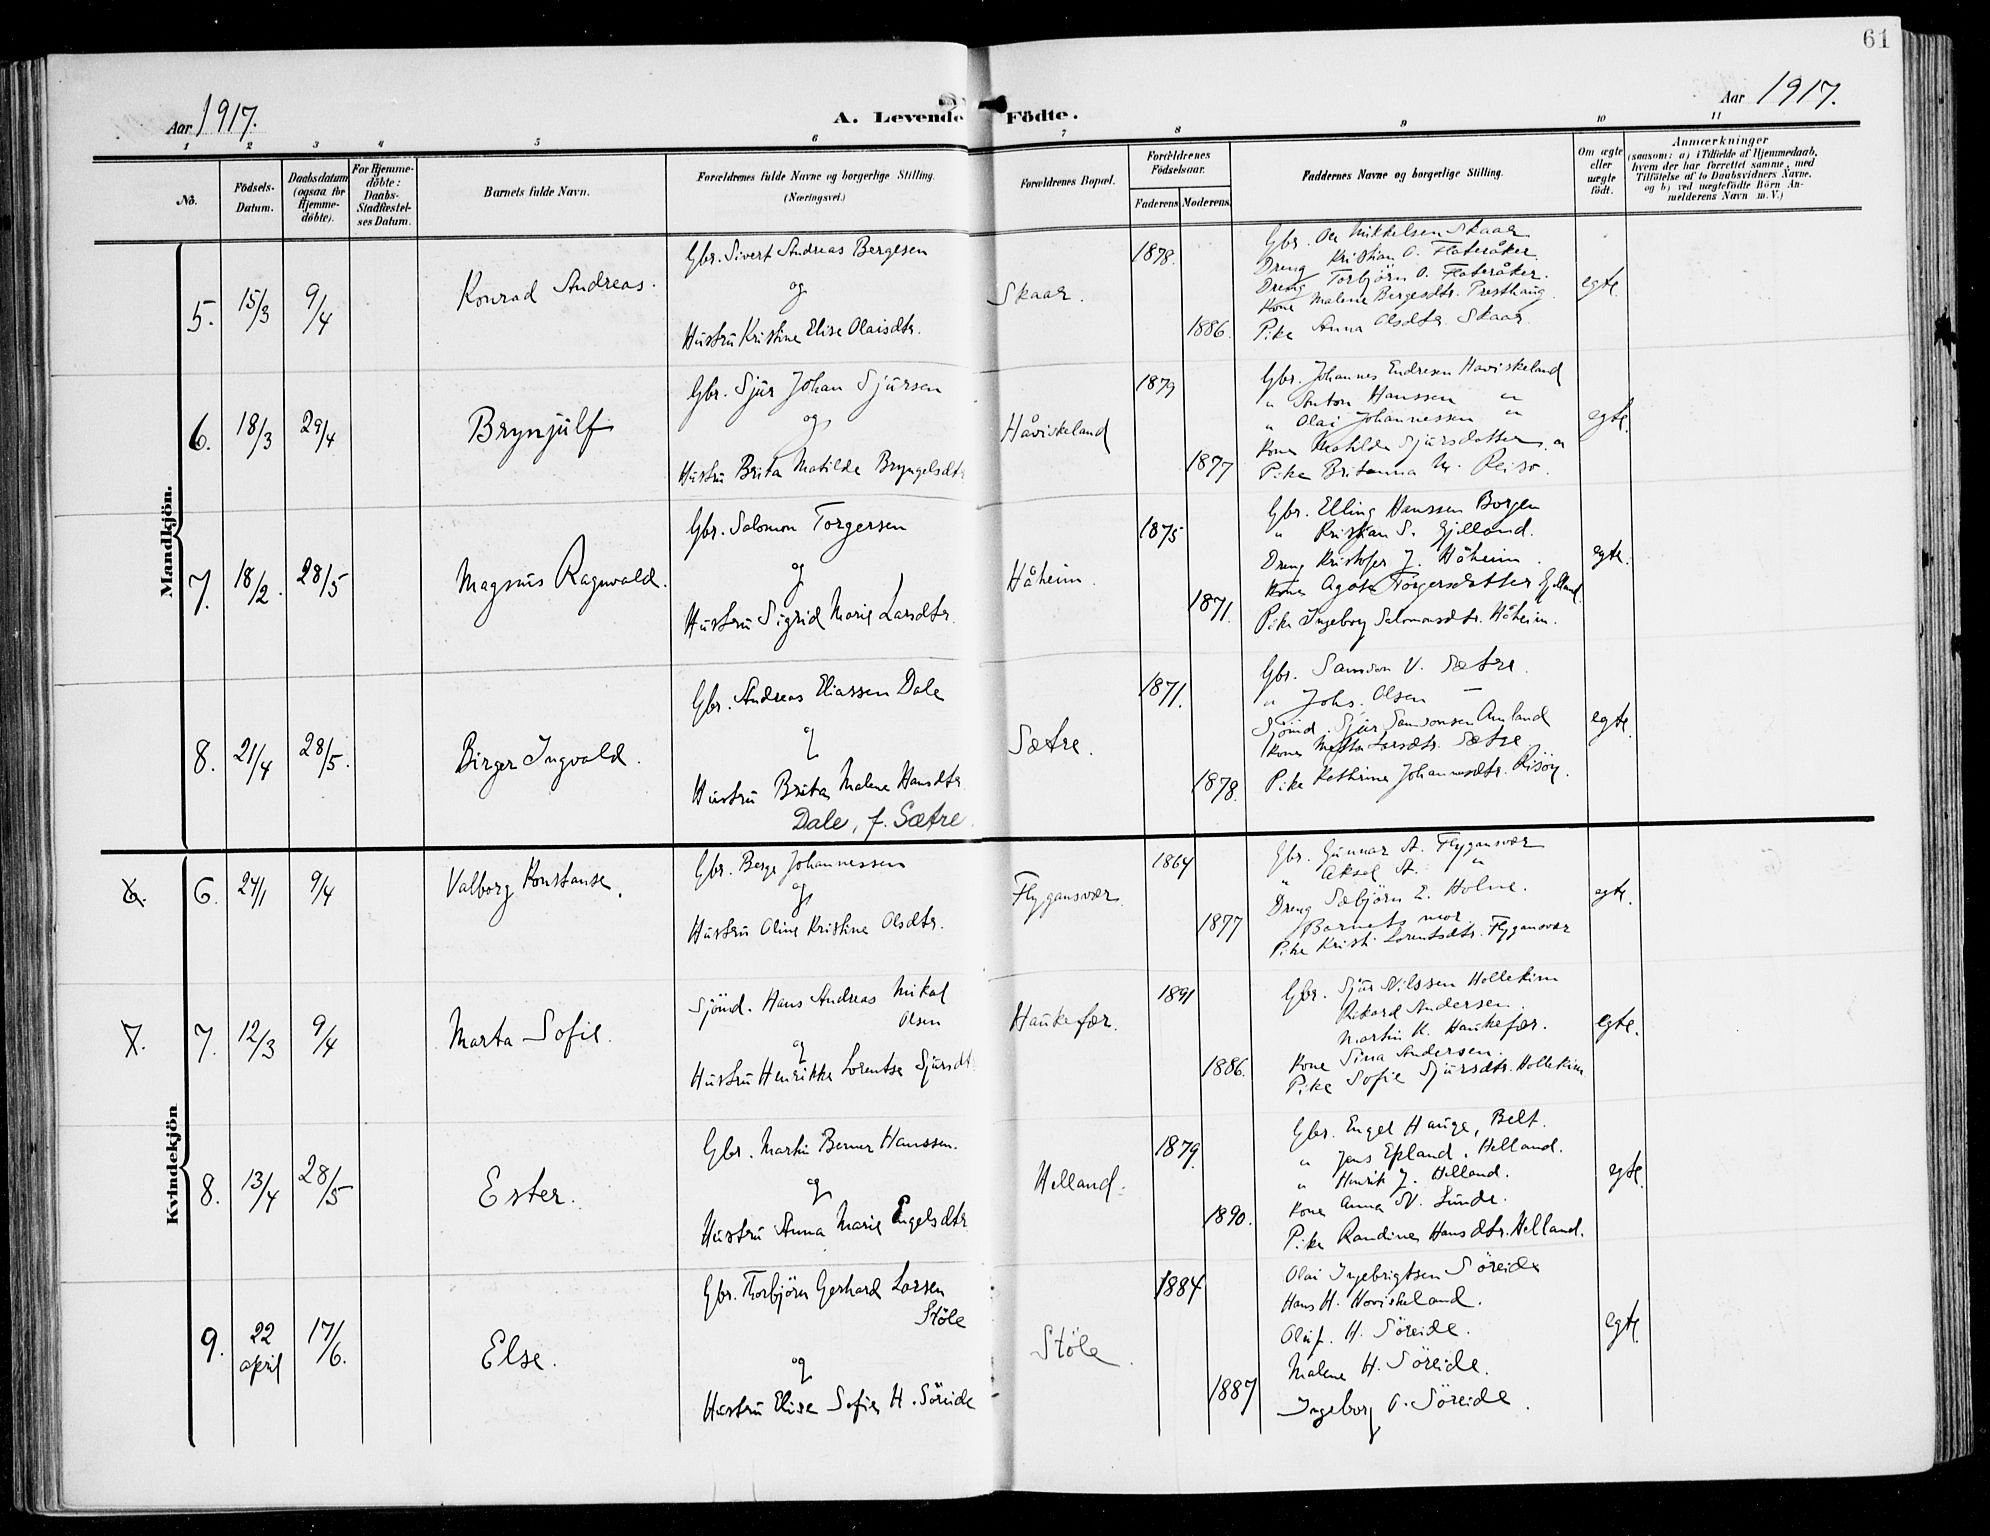 61
Aar 1917.
A. Levende Födte.
Aar 1917.
1 2 3 4 5 6 7 8 9 10 11
No.
Födsels-
Datum.
Daabsdatum
(ogsaa for
Hjemme-
döbte).
For Hjemme-
döbte:
Daabs-
Stadfæstel-
ses Datum.
Barnets fulde Navn.
Forældrenes fulde Navne og borgerlige Stilling.
(Næringsvei.)
Forældrenes Bopæl.
Forældrenes
Födselsaar.
Faderens. Moderens.
Faddernes Navne og borgerlige Stilling.
Om ægte
eller
uægte
födt.
Anmærkninger
(saasom: a) i Tilfælde af Hjemmedaab,
hvem der har forrettet samme, med
Tilföielse af to Daabsvidners Navne,
og b) ved uægtefödte Börn An-
melderens Navn m. V.)
Mandkjön.
5. 15/3 9/4 Konrad Andreas.
Gbr. Sivert Andreas Bergesen
og
Hustru Kristine Elise Olaisdtr.
Skaar.
1878.
1886.
Gbr. Ole Mikkelsen Skaar
Dreng Kristian O. Flateråker.
Dreng Torbjörn O. Flateråker.
Kone Malene Bergesdtr. Presthaug.
Pike Anna Olsdtr. Skaar
egte.
6. 18/3 29/4 Brynjulf
Gbr. Sjur Johan Sjursen
og
Hustru Brita Matilde Bryngelsdtr
Håviskeland
1879
1877
Gbr. Johannes Endresen Haviskeland
" Anton Hanssen "
" Olai Johannessen "
Kone Matilde Sjursdatter "
Pike Britanna M. Reisö.
egte.
7. 18/2. 28/5 Magnus Ragnvald.
Gbr. Salomon Torgersen
og
Hustru Sigrid Marie Larsdtr.
Håheim.
1875
1871.
Gbr. Elling Hanssen Borgen
" Kristian S. Gjelland.
Dreng Kristofer J. Håheim.
Kone Agote Torgersdatter Gjelland.
Pike Ingeborg Salomonsdtr. Håheim.
egte.
8. 21/4 28/5. Birger Ingvald.
Gbr. Andreas Eliassen Dale
og
Hustru Brita Malene Hansdtr.
Dale, f. Sætre.
Sætre.
1871.
1878.
Gbr. Samson V. Sætre.
" Johs. Olsen —
Sjömd. Sjur Samsonsen Amland
Kone Larsdtr. Sætre
Pike Kathrine Johannesdtr. Risöy.
egte.
Kvindekjön
6. 6. 24/1 9/4 Valborg Konstanse.
Gbr. Berge Johannessen
og
Hustru Oline Kristine Olsdtr.
Flygansvær.
1864
1877
Gbr. Gunnar A. Flygansvær
" Aksel A. "
Dreng Sæbjörn E. Holme.
Barnets mor
Pike Kristi Lorentsdtr. Flygansvær
egte.
7. 7. 12/3 9/4 Marta Sofie.
Sjömd. Hans Andreas Mikal
Olsen
og
Hustru Henrikke Lorentse Sjursdt.
Haukefær.
1891
1886.
Gbr. Sjur Nilssen Hollekim
Rikard Andersen.
Martin K. Haukefær.
Kone Sina Andersen.
Pike Sofie Sjursdtr. Hollekim
egte.
8. 13/4 28/5 Ester.
Gbr. Martin Berner Hanssen.
og
Hustru Anna Marie Engelsdtr
Helland.
1879.
1890.
Gbr. Engel Hauge, Belt.
" Jens Epland, Helland.
" Henrik J. Helland.
Kone Anna N. Lunde.
Pike Randine Hansdtr. Helland.
egte.
9. 22 april 17/6. Else.
Gbr. Thorbjörn Gerhard Larsen
Stöle
og
Hustru Elise Sofie H. Söreide
Stöle.
1884
1887
Olai Ingebrigtsen Söreide
Hans H. Hoviskeland.
Oluf. H. Söreide.
Malene H. Söreide.
Ingeborg O. Söreide.
egte.